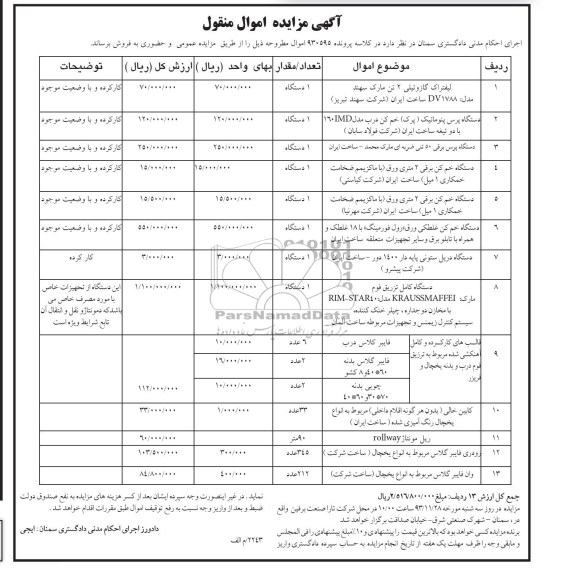 آگهی مزایده اموال منقول
اجرای احکام مدنی دادگستری سمنان در نظر دارد در کلاسه پرونده ۹۳۰۵۹۵ اموال مطروحه ذیل را از طریق مزایده عمومی و حضوری به فروش برساند.
ردیف موضوع اموال تعداد/مقدار بهای واحد (ریال) ارزش کل (ریال) توضیحات
۱ لیفتراک گازوئیلی ۲ تن مارک سهند ۱ دستگاه ۷۰/۰۰۰/۰۰۰ ۷۰/۰۰۰/۰۰۰ کارکرده و با وضعیت موجود
مدل: DV۱۷۸۸ ساخت ایران (شرکت سهند تبریز)
۲ دستگاه پرس پنوماتیک (پرک) خم کن درب مدل ۱۶۰IMD ۱ دستگاه ۱۲۰/۰۰۰/۰۰۰ ۱۲۰/۰۰۰/۰۰۰ کارکرده و با وضعیت موجود
با دو تیغه ساخت ایران (شرکت فولاد سابان)
۳ دستگاه پرس برقی ۵۰ تنی ضربه ای مارک محمد – ساخت ایران ۱ دستگاه ۲۵۰/۰۰۰/۰۰۰ ۲۵۰/۰۰۰/۰۰۰ کارکرده و با وضعیت موجود
۴ دستگاه خم کن برقی ۲ متری ورق (با ماکزیمم ضخامت ۱ دستگاه ۱۵/۰۰۰/۰۰۰ ۱۵/۰۰۰/۰۰۰ کارکرده و با وضعیت موجود
خمکاری ۱ میل) ساخت ایران (شرکت کیاستی)
۵ دستگاه خم کن برقی ۲ متری ورق (با ماکزیمم ضخامت ۱ دستگاه ۱۵/۵۰۰/۰۰۰ ۱۵/۵۰۰/۰۰۰ کارکرده و با وضعیت موجود
خمکاری ۱ میل) ساخت ایران (شرکت مهرنیا)
۶ دستگاه خم کن غلطکی ورق «رول فورمینگ» با ۱۸ غلطک و ۱ دستگاه ۵۵۰/۰۰۰/۰۰۰ ۵۵۰/۰۰۰/۰۰۰ کارکرده و با وضعیت موجود
همراه با تابلو برق و سایر تجهیزات متعلقه ساخت ایران
۷ دستگاه دریل ستونی پایه دار ۱۴۰۰ دور – ساخت ایران ۱ دستگاه ۳/۰۰۰/۰۰۰ ۳/۰۰۰/۰۰۰ کار کرده
(شرکت پیشرو)
۸ دستگاه کامل تزریق فوم ۱ دستگاه ۱/۱۰۰/۰۰۰/۰۰۰ ۱/۱۰۰/۰۰۰/۰۰۰ این دستگاه از تجهیزات خاص
مارک: KRAUSSMAFFEI مدل: RIM-STAR۴۰ با مورد مصرف خاص می
با مخازن دو جداره، چیلر خنک کننده، باشد که دمونتاژ و نقل و انتقال آن
سیستم کنترل زیمنس و تجهیزات مربوطه ساخت آلمان تابع شرایط ویژه است
۹ قالب های کارکرده و کامل فایبر کلاس درب ۶ عدد ۱۰/۰۰۰/۰۰۰
آهنکشی شده مربوط به تزریق فایبر گلاس بدنه ۲عدد ۱۶/۰۰۰/۰۰۰
فوم درب و بدنه یخچال و ۴۰*۶۰ و ۸ کشو
فریزر چوبی بدنه ۲عدد ۱۰/۰۰۰/۰۰۰ ۱۱۲/۰۰۰/۰۰۰
۳۰*۷۰ و ۴۰*۶۰
۱۰ کابین خالی (بدون هر گونه اقلام داخلی) مربوط به انواع ۳۳عدد ۱/۰۰۰/۰۰۰ ۳۳/۰۰۰/۰۰۰
یخچال رنگ آمیزی شده (ساخت ایران)
۱۱ ریل مونتاژ rollway ۹۰متر ۶۰/۰۰۰/۰۰۰
۱۲ رودری فایبر گلاس مربوط به انواع یخچال (ساخت شرکت) ۳۴۵عدد ۳۰۰/۰۰۰ ۱۰۳/۵۰۰/۰۰۰
۱۳ وان فایبر گلاس مربوط به انواع یخچال (ساخت شرکت) ۲۱۲عدد ۴۰۰/۰۰۰ ۸۴/۸۰۰/۰۰۰
ParsNamadData
پایگاه داده ها
جمع کل ارزش ۱۳ ردیف: مبلغ ۲/۵۱۶/۸۰۰/۰۰۰ریال
مزایده در روز سه شنبه مورخه ۹۳/۱۱/۲۸ ساعت ۱۰/۰۰ در محل شرکت تارا صنعت برفین واقع
در، سمنان – شهرک صنعتی شرق- خیابان صداقت برگزار خواهد شد.
برنده مزایده کسی خواهد بود که بالاترین قیمت را پیشنهادی و ۱۰٪ مبلغ پیشنهادی را فی المجلس
و مابقی وجه را ظرف مهلت یک هفته از تاریخ انجام مزایده به حساب سپرده دادگستری واریز
نماید. در غیر اینصورت وجه سپرده ایشان بعد از کسر هزینه های مزایده به نفع صندوق دولت
ضبط و بعد از واریز وجه نسبت به رفع توقیف اموال طبق مقررات اقدام خواهد شد.
دادورز اجرای احکام مدنی دادگستری سمنان: ایجی
۲۲۴۳/م الف